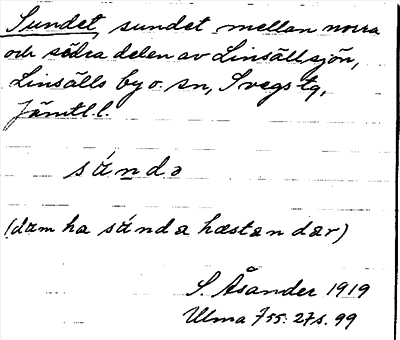 Sundet, sundet mellan norra
och södra delen av Linsällsjön,
Linsälls by o. sn, Svegs tg,
Jämtl. l.
sánda
(dam ha sánda hæstan dar)
S. Åsander 1919
Ulma 755: 27 s. 99